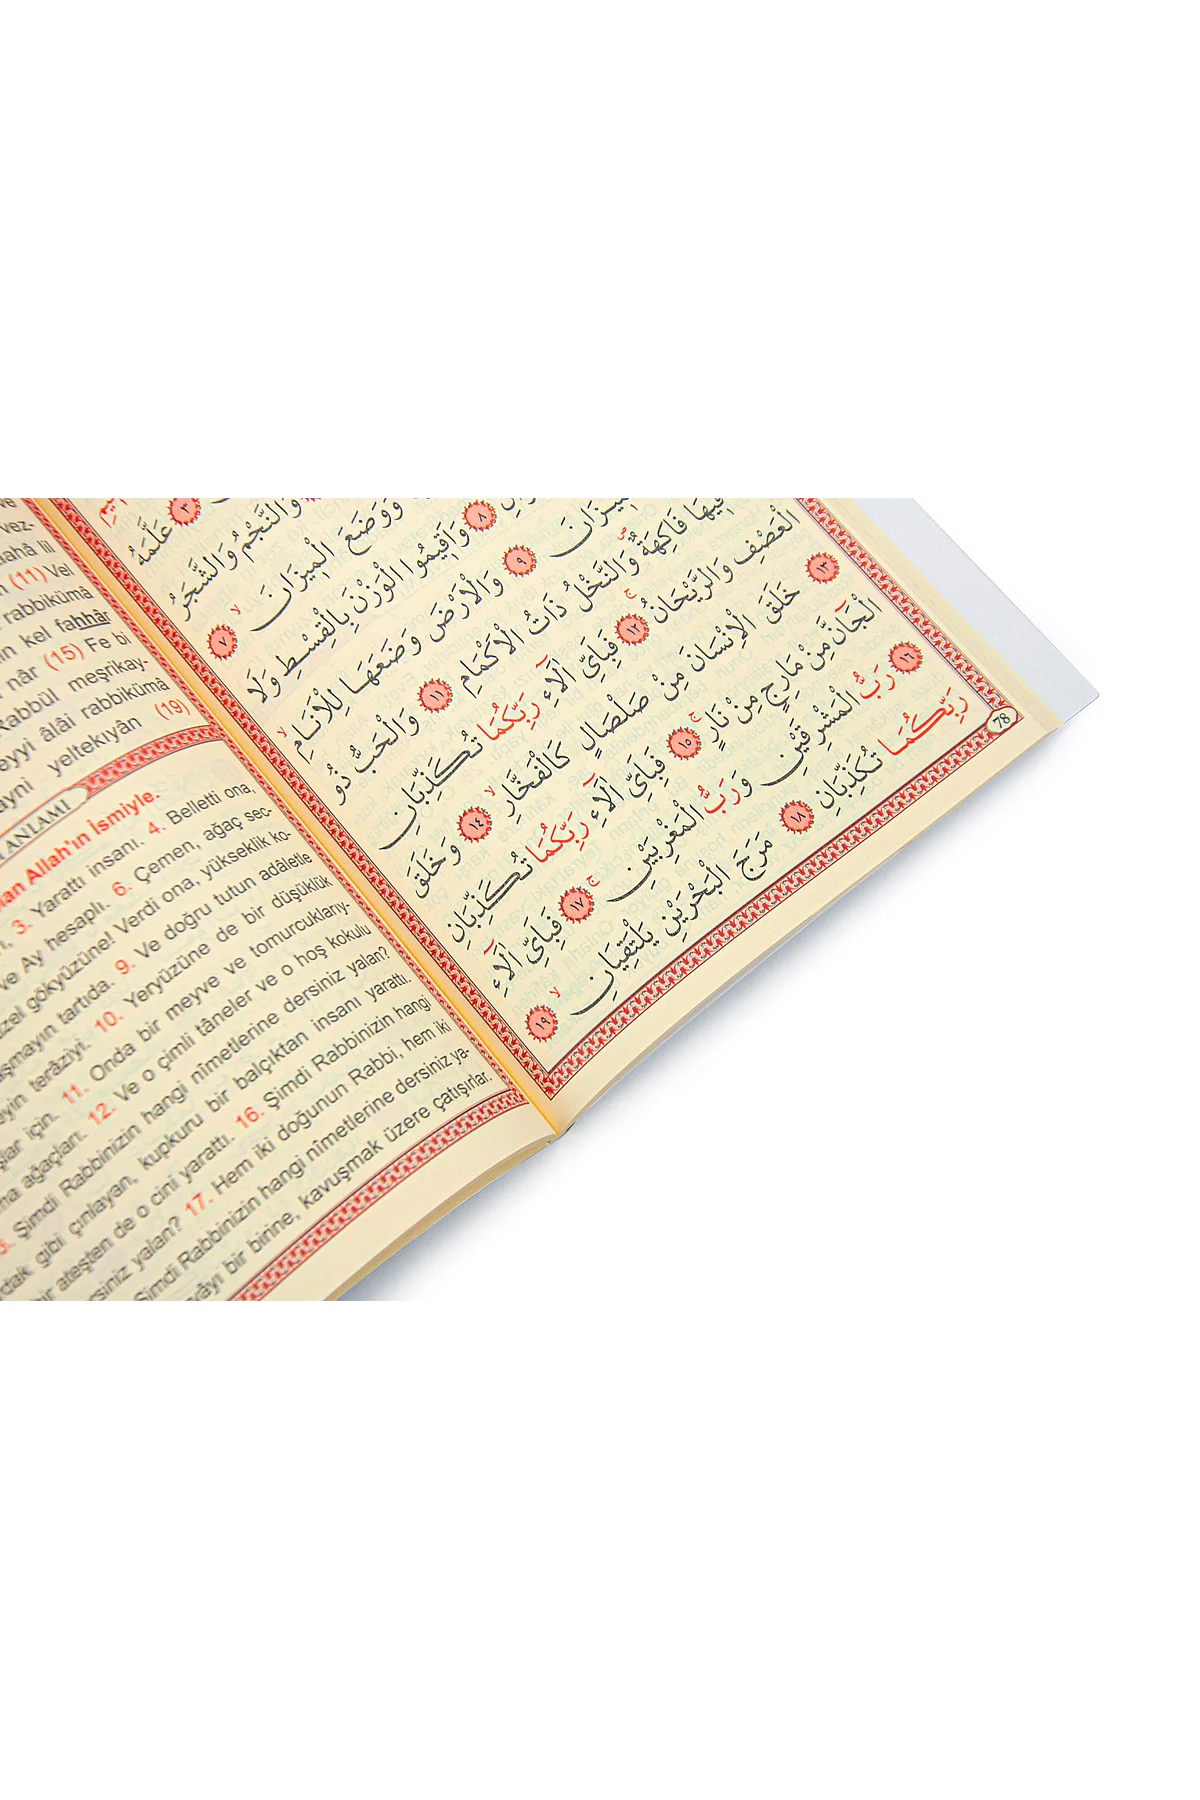 vez-
(11) Vel
rabbikümâ
kel fahhâr
nâr (15) Fe bi
Rabbül meşrikay-
âlâi rabbikümâ
yeltekıyân (19)
ANLAMI
Allah'ın İsmiyle.
3. Yarattı insanı. 4. Belletti ona,
ve Ay hesaplı. 6. Çemen, ağaç sec-
gökyüzüne! Verdi ona, yükseklik ko-
tartıda. 9. Ve doğru tutun adâletle
terâziyi. 10. Yeryüzüne de bir düşüklük
için. 11. Onda bir meyve ve tomurcuklarıy-
ağaçları. 12. Ve o çimli tâneler ve o hoş kokulu
Şimdi Rabbinizin hangi nîmetlerine dersiniz yalan?
gibi çınlayan, kupkuru bir balçıktan insanı yarattı.
ateşten de o cini yarattı. 16. Şimdi Rabbinizin hangi
yalan? 17. Hem iki doğunun Rabbi, hem iki
Şimdi Rabbinizin hangi nîmetlerine dersiniz ya-
bir birine, kavuşmak üzere çatışırlar.
٣ عَلَّمَهُ
وَالنَّجْمُ وَالشَّجَرُ
وَوَضَعَ الْمِيزَانَ ٧
٨ وَاَقِيمُوا الْوَزْنَ بِالْقِسْطِ وَلَا
الْمِيزَانَ ٩ وَالْاَرْضَ وَضَعَهَا لِلْاَنَامِ
فِيهَا فَاكِهَةٌ وَالنَّخْلُ ذَاتُ الْاَكْمَامِ ١١ وَالْحَبُّ ذُو
الْعَصْفِ وَالرَّيْحَانُ ١٢ فَبِاَىِّ اٰلَٓاءِ رَبِّكُمَا تُكَذِّبَانِ
١٣ خَلَقَ الْاِنْسَانَ مِنْ صَلْصَالٍ كَالْفَخَّارِ ١٤ وَخَلَقَ
الْجَٓانَّ مِنْ مَارِجٍ مِنْ نَارٍ ١٥ فَبِاَىِّ اٰلَٓاءِ رَبِّكُمَا تُكَذِّبَانِ
١٦ رَبُّ الْمَشْرِقَيْنِ وَرَبُّ الْمَغْرِبَيْنِ ١٧ فَبِاَىِّ اٰلَٓاءِ
رَبِّكُمَا تُكَذِّبَانِ ١٨ مَرَجَ الْبَحْرَيْنِ يَلْتَقِيَانِ ١٩
78